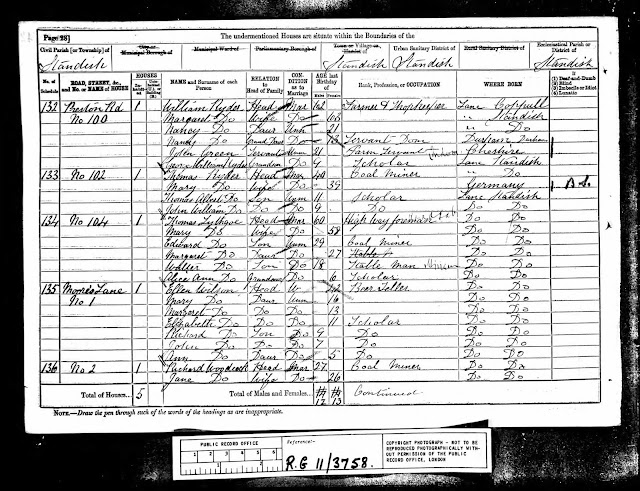 Page 28] The undermentioned Houses are situate within the Boundaries of the
Civil Parish [or Township] of City or Municipal Borough of Municipal Ward of Parliamentary Borough of Town or Village or Urban Sanitary District of Rural Sanitary District of Ecclesiastical Parish or District of
Standish Standish Standish Standish
No. of Schedule ROAD, STREET, &c., and No. or NAME of HOUSE HOUSES NAME and Surname of each Person RELATION to Head of Family CONDITION as to Marriage AGE last Birthday of Males Females Rank, Profession, or OCCUPATION WHERE BORN If (1) Deaf-and-Dumb (2) Blind (3) Imbecile or Idiot (4) Lunatic
132 Preston Rd 1 William Ryder Head Mar 62 Farmer & Shopkeeper Lanc Coppull
No 100 Margaret Do Wife Do 65 " Standish
Nancy Do Daur Unm 21 " Do
Nancy Do Grand Daur Do 13 Servant Dom Durham
John Green Servant Unm 61 Farm Servant Cheshire
William Ryder Grandson Do 9 Scholar Lanc Standish
133 No 102 1 Thomas Ryder Head Mar 40 Coal Miner " Do
Mary Do Wife Do 39 Germany B.S.
Thomas Albert Do Son Unm 11 Scholar Lanc Standish
John William Do Do Do Do Do
134 No 104 1 Thomas Lythgoe Head Mar 60 High Way foreman Do Do
Mary Do Wife Do 58 Do Do
Edward Do Son Unm 29 Coal Miner Do Do
Margaret Do Daur Do 27 Do Do
Walter Do Son Do 18 Stable Man Do Do
Alice Ann Do Grandaur Do 6 Scholar Do Do
135 Moores Lane 1 Ellen Wilson Head W Beer Seller Do Do
No 1 Mary Do Daur Unm 16 Do Do
Margaret Do Do Do 13 Do Do
Elizabeth Do Do Do 11 Scholar Do Do
Richard Do Son Do 9 Do Do Do
John Do Do Do 7 Do Do Do
Amy Do Daur Do 5 Do Do Do
136 No 2 1 Richard Woodcock Head Mar 27 Coal Miner Do Do
Jane Do Wife Do 26 Do Do
Total of Houses... 5 Total of Males and Females... 12 13 Continued
NOTE.—Draw the pen through such of the words of the headings as are inappropriate.
PUBLIC RECORD OFFICE
1 2 3 4 5 6
Reference:-
R.G 11/3758.
COPYRIGHT PHOTOGRAPH - NOT TO BE REPRODUCED PHOTOGRAPHICALLY WITHOUT PERMISSION OF THE PUBLIC RECORD OFFICE, LONDON